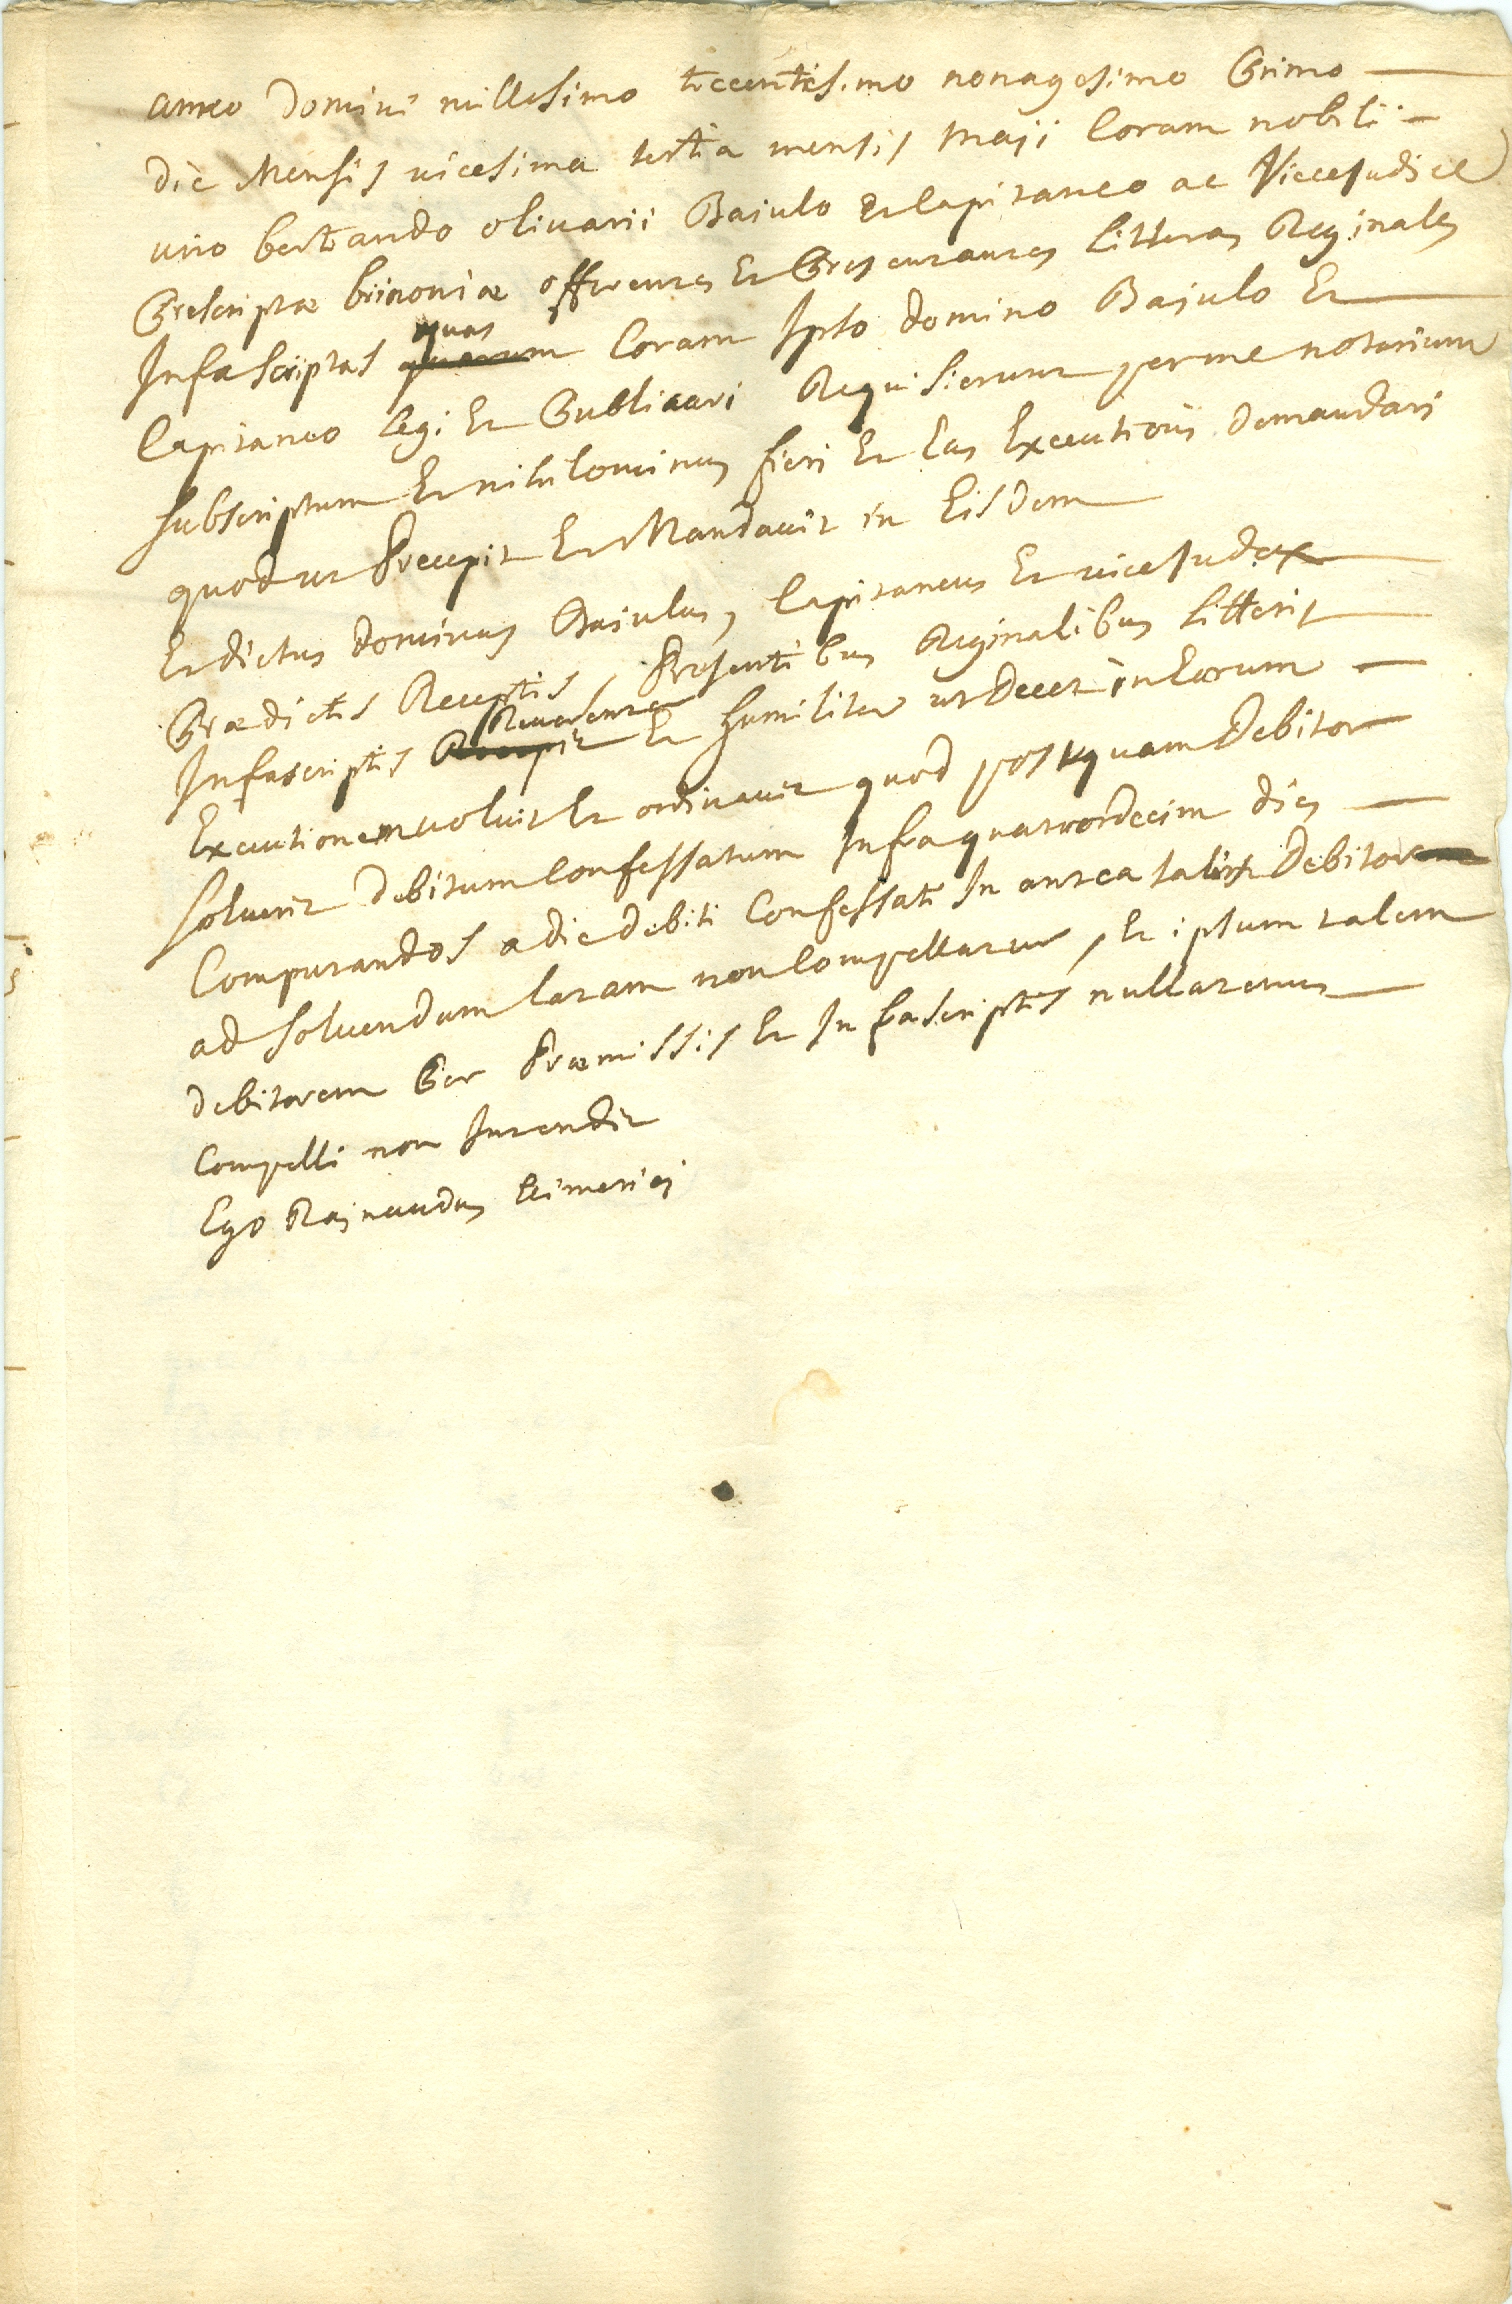 anno Domini millesimo treccentesimo nonagesimo Primo
die Mensis uicesima tertia mensis maji Coram nobili
uiro bertrando oliuarii Bajulo Et Capitaneo ac ViceJudice
Prescriptæ brinoniæ offerentes Et Presentantes Litteras Reginales
Infrascriptas quas Coram Ipso domino Bajulo Et
Capitaneo legi Et Publicari Requisierunt per me notarium
subscriptum Et nihilominus fieri Et Eas Executioni demandari
quod ut Precepit Et Mandauit in Eisdem
Et dictus dominus Bajulus, Capitaneus Et uiceJudex
Prædictis Receptis, Presentibus Reginalibus Litteris
Infrascriptis Reuerenter Et humiliter ut Decet in Eorum
Executionem uoluit Et ordinauit quod postquam Debitor
soluerit debitum Confessatum Infra quatuordecim dies
Computandos a die debiti Confessati In antea talis Debitor
ad soluendum latam non Compellatur, Et ipsum talem
debitorem Per Præmissis Et Infrascriptis nullatenus
Compelli non Intendit
Ego Rajnaudus Eimerici